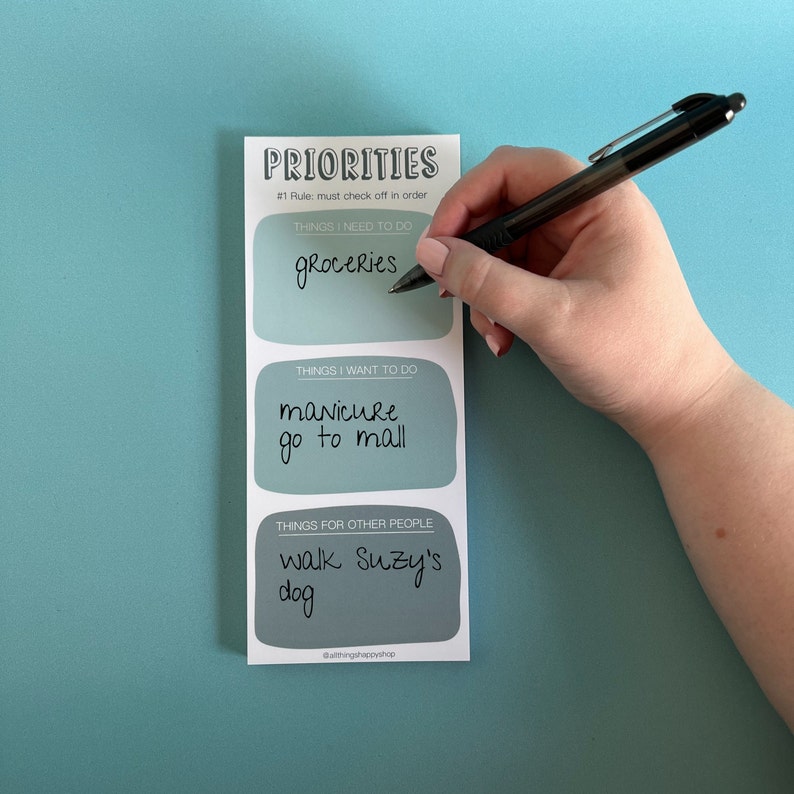 PRIORITIES
#1 Rule: must check off in order
THINGS I NEED TO DO
groceries
THINGS I WANT TO DO
manicure
go to mall
THINGS FOR OTHER PEOPLE
walk Suzy's
dog
@allthingshappyshop